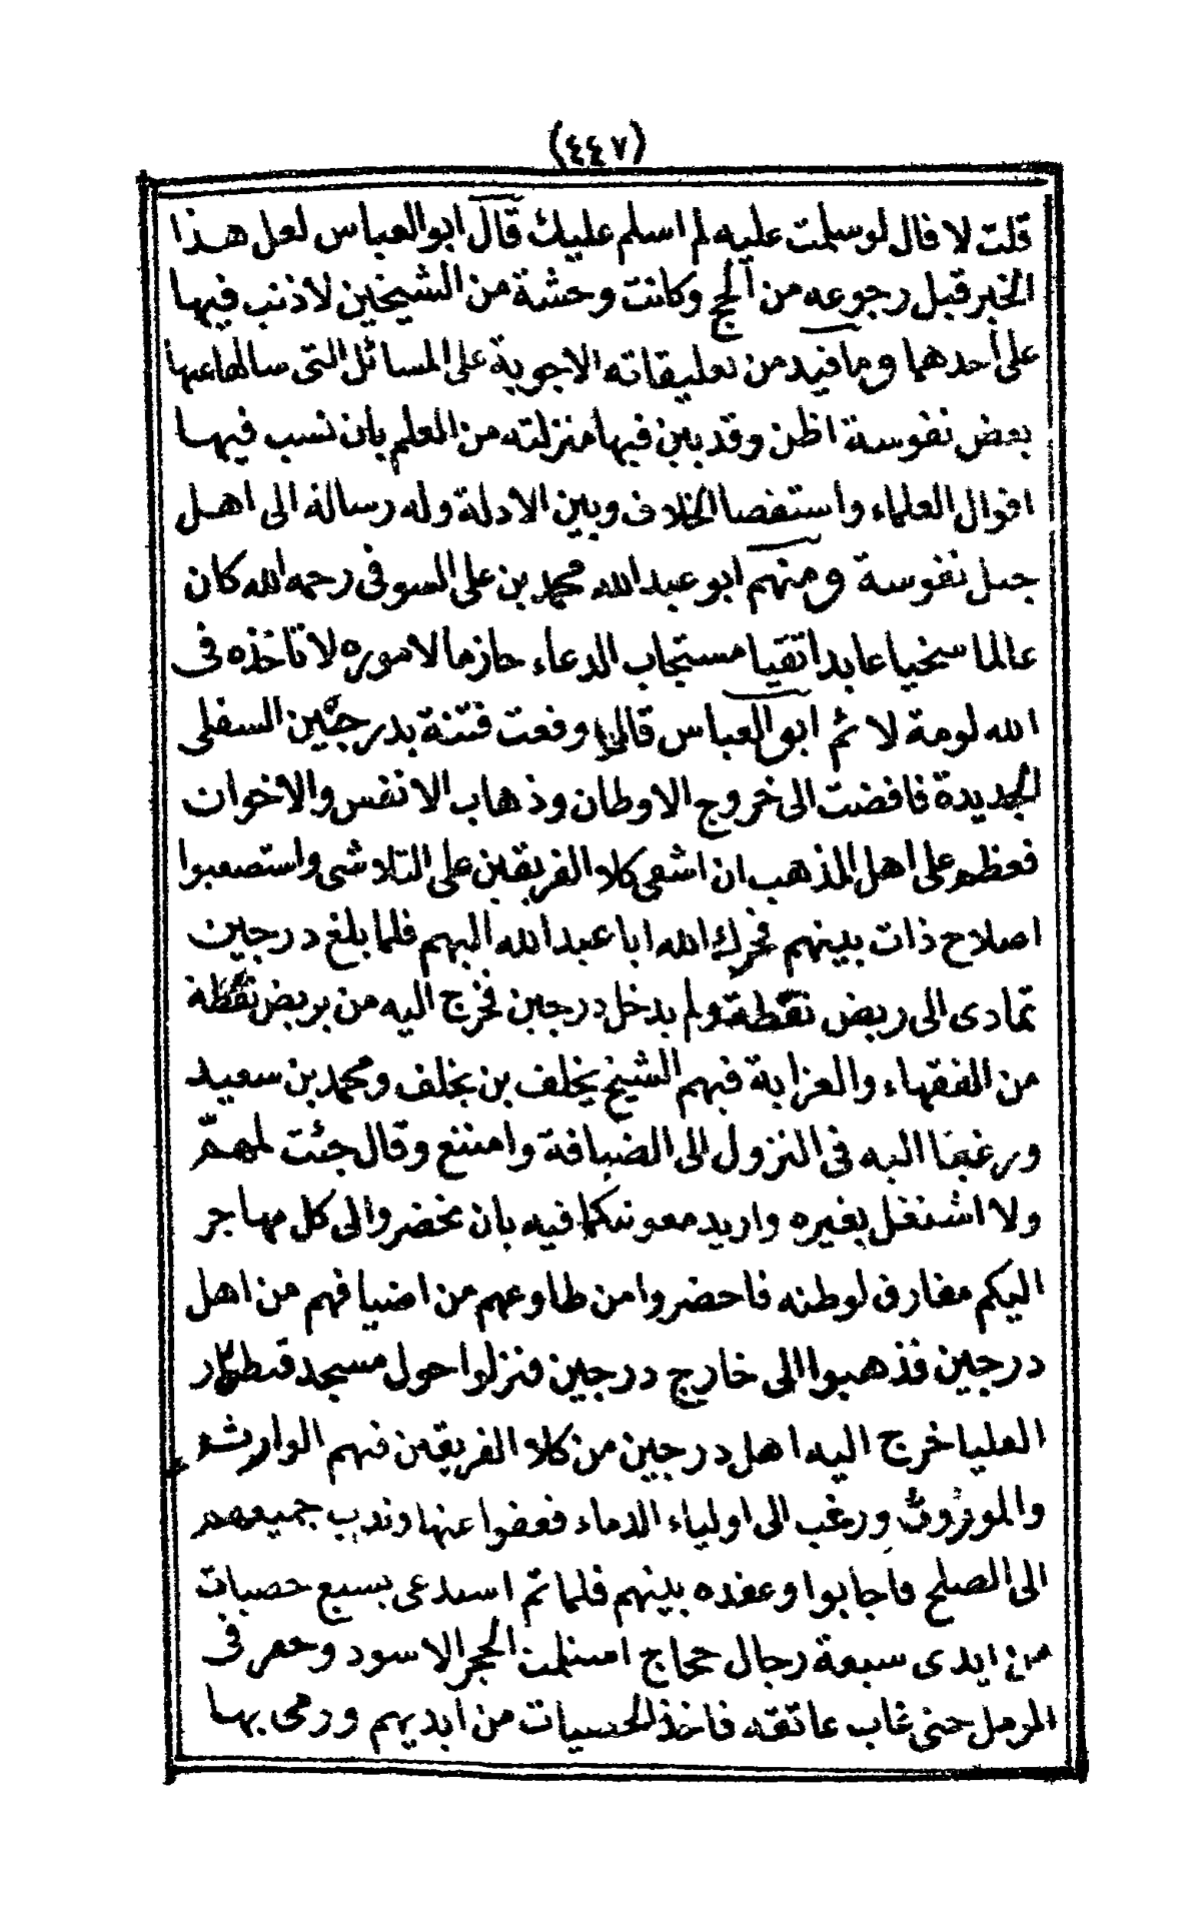 (٤٤٧)
قلت لا قال لو سلمت عليه لم اسلم عليك قال ابو العباس لعل هـذا
الخبر قبل رجوعه من الحج وكانت وحشة من الشيخين لا ذنب فيها
على أحدهما ومما قيد من تعليقاته الاجوبة على المسائل التى سالها عنها
بعض نفوسة اظن وقد بين فيها منزلته من العلم بان نسب فيهـا
اقوال العلماء واستقصا الخلاف وبين الادلة وله رسالة الى اهـل
جبل نفوسة ومنهم ابو عبد الله محمد بن على السوفى رحمه الله كان
عالما سخيا عابدا تقيا مستجاب الدعاء حازما لاموره لا تاخذه فى
الله لومة لائم ابو العباس قال وقعت فتنة بدرجين السفلى
الجديدة فافضت الى خروج الاوطان وذهاب الانفس والاخوان
فعظم على اهل المذهب ان اشفى كلا الفريقين على التلاشى واستصعبوا
اصلاح ذات بينهم فحرك الله ابا عبد الله اليهم فلما بلغ درجين
تمادى الى ربض نقطة ولم يدخل درجين فخرج اليه من بربض نقطة
من الفقهاء والعزابة فبهم الشيخ يخلف بن يخلف ومحمد بن سعيد
ورغبا اليه فى النزول الى الضيافة وامتنع وقال جئت لمهـمّ
ولا اشتغل بغيره واريد معونتكما فيه بان تحضروا الى كل مهاجر
اليكم مفارق لوطنه فاحضروا من طاوعهم من اضيافهم من اهل
درجين فذهبوا الى خارج درجين فنزلوا حول مسجد
العليا خرج اليه اهل درجين من كلا الفريقين فبهم الوارث
والموروث ورغب الى اولياء الدماء فعفوا عنها وندب جميعهم
الى الصلح فاجابوا وعقده بينهم فلما تم استدعى بسبع حصيات
من ايدى سبعة رجال حجاج استلمت الحجر الاسود وحفر فى
الرمل حتى غاب عاتقه فاخذ الحسيات من ايديهم ورمى بهـا